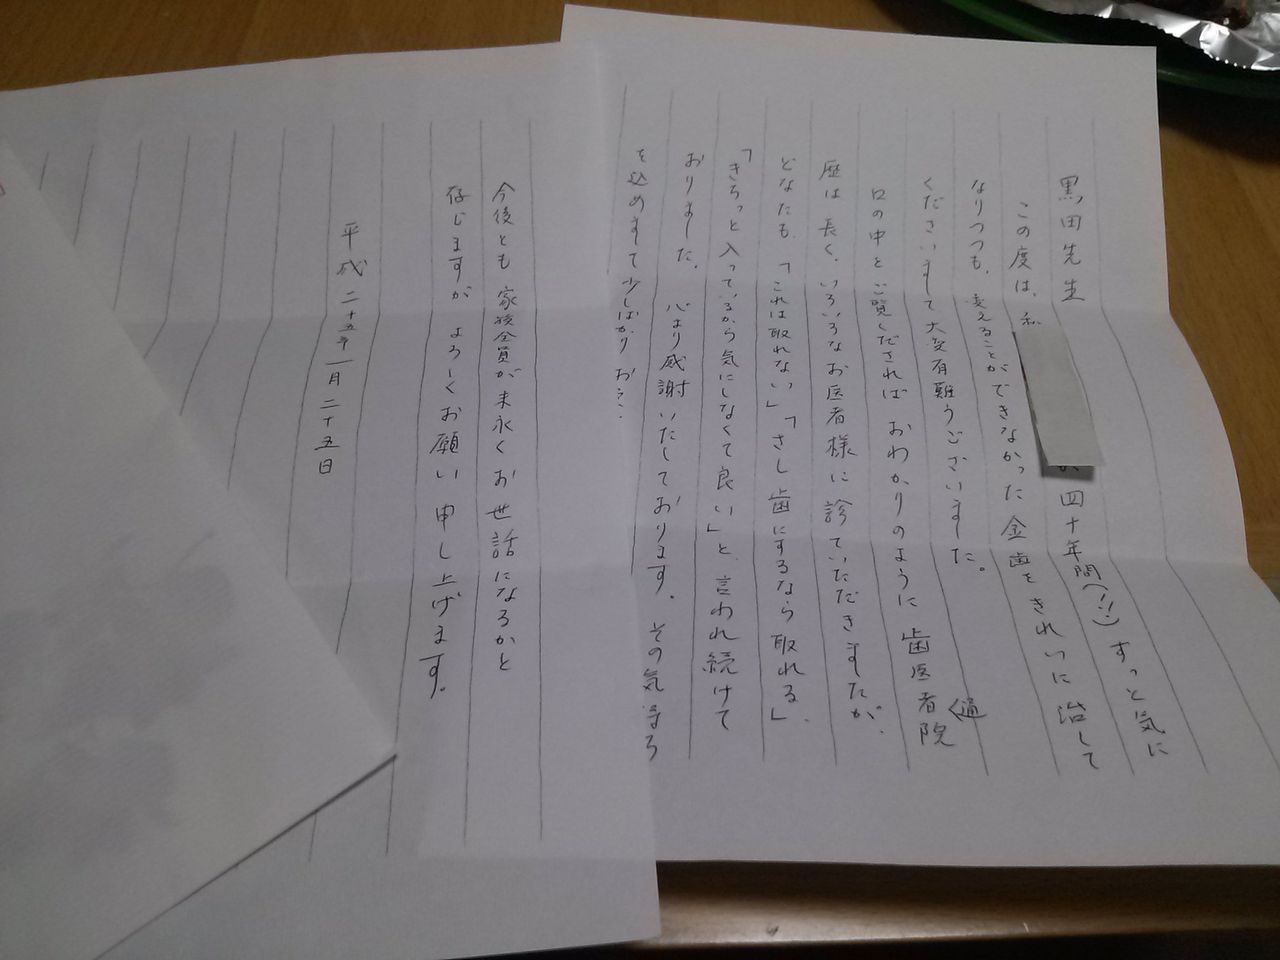 黒田先生
この度は、私が四十年間(ノソン)ずっと気に
なりつつも、変えることができなかった金歯をきれいに治して
くださいまして大変有難うございました。
口の中をご覧くだされば おわかりのように 歯医者通院
歴は長く、いろいろなお医者様に診ていただきましたが、
どなたも、「これは取れない」「さし歯にするなら取れる」、
「きちっと入っているから気にしなくて良い」と、言われ続けて
おりました。 心より感謝いたしております。その気持ち
を込めまして少しばかり
今後とも家族全員が末永くお世話になるかと
存じますが よろしくお願い申し上げます。
平成二十五年一月二十五日